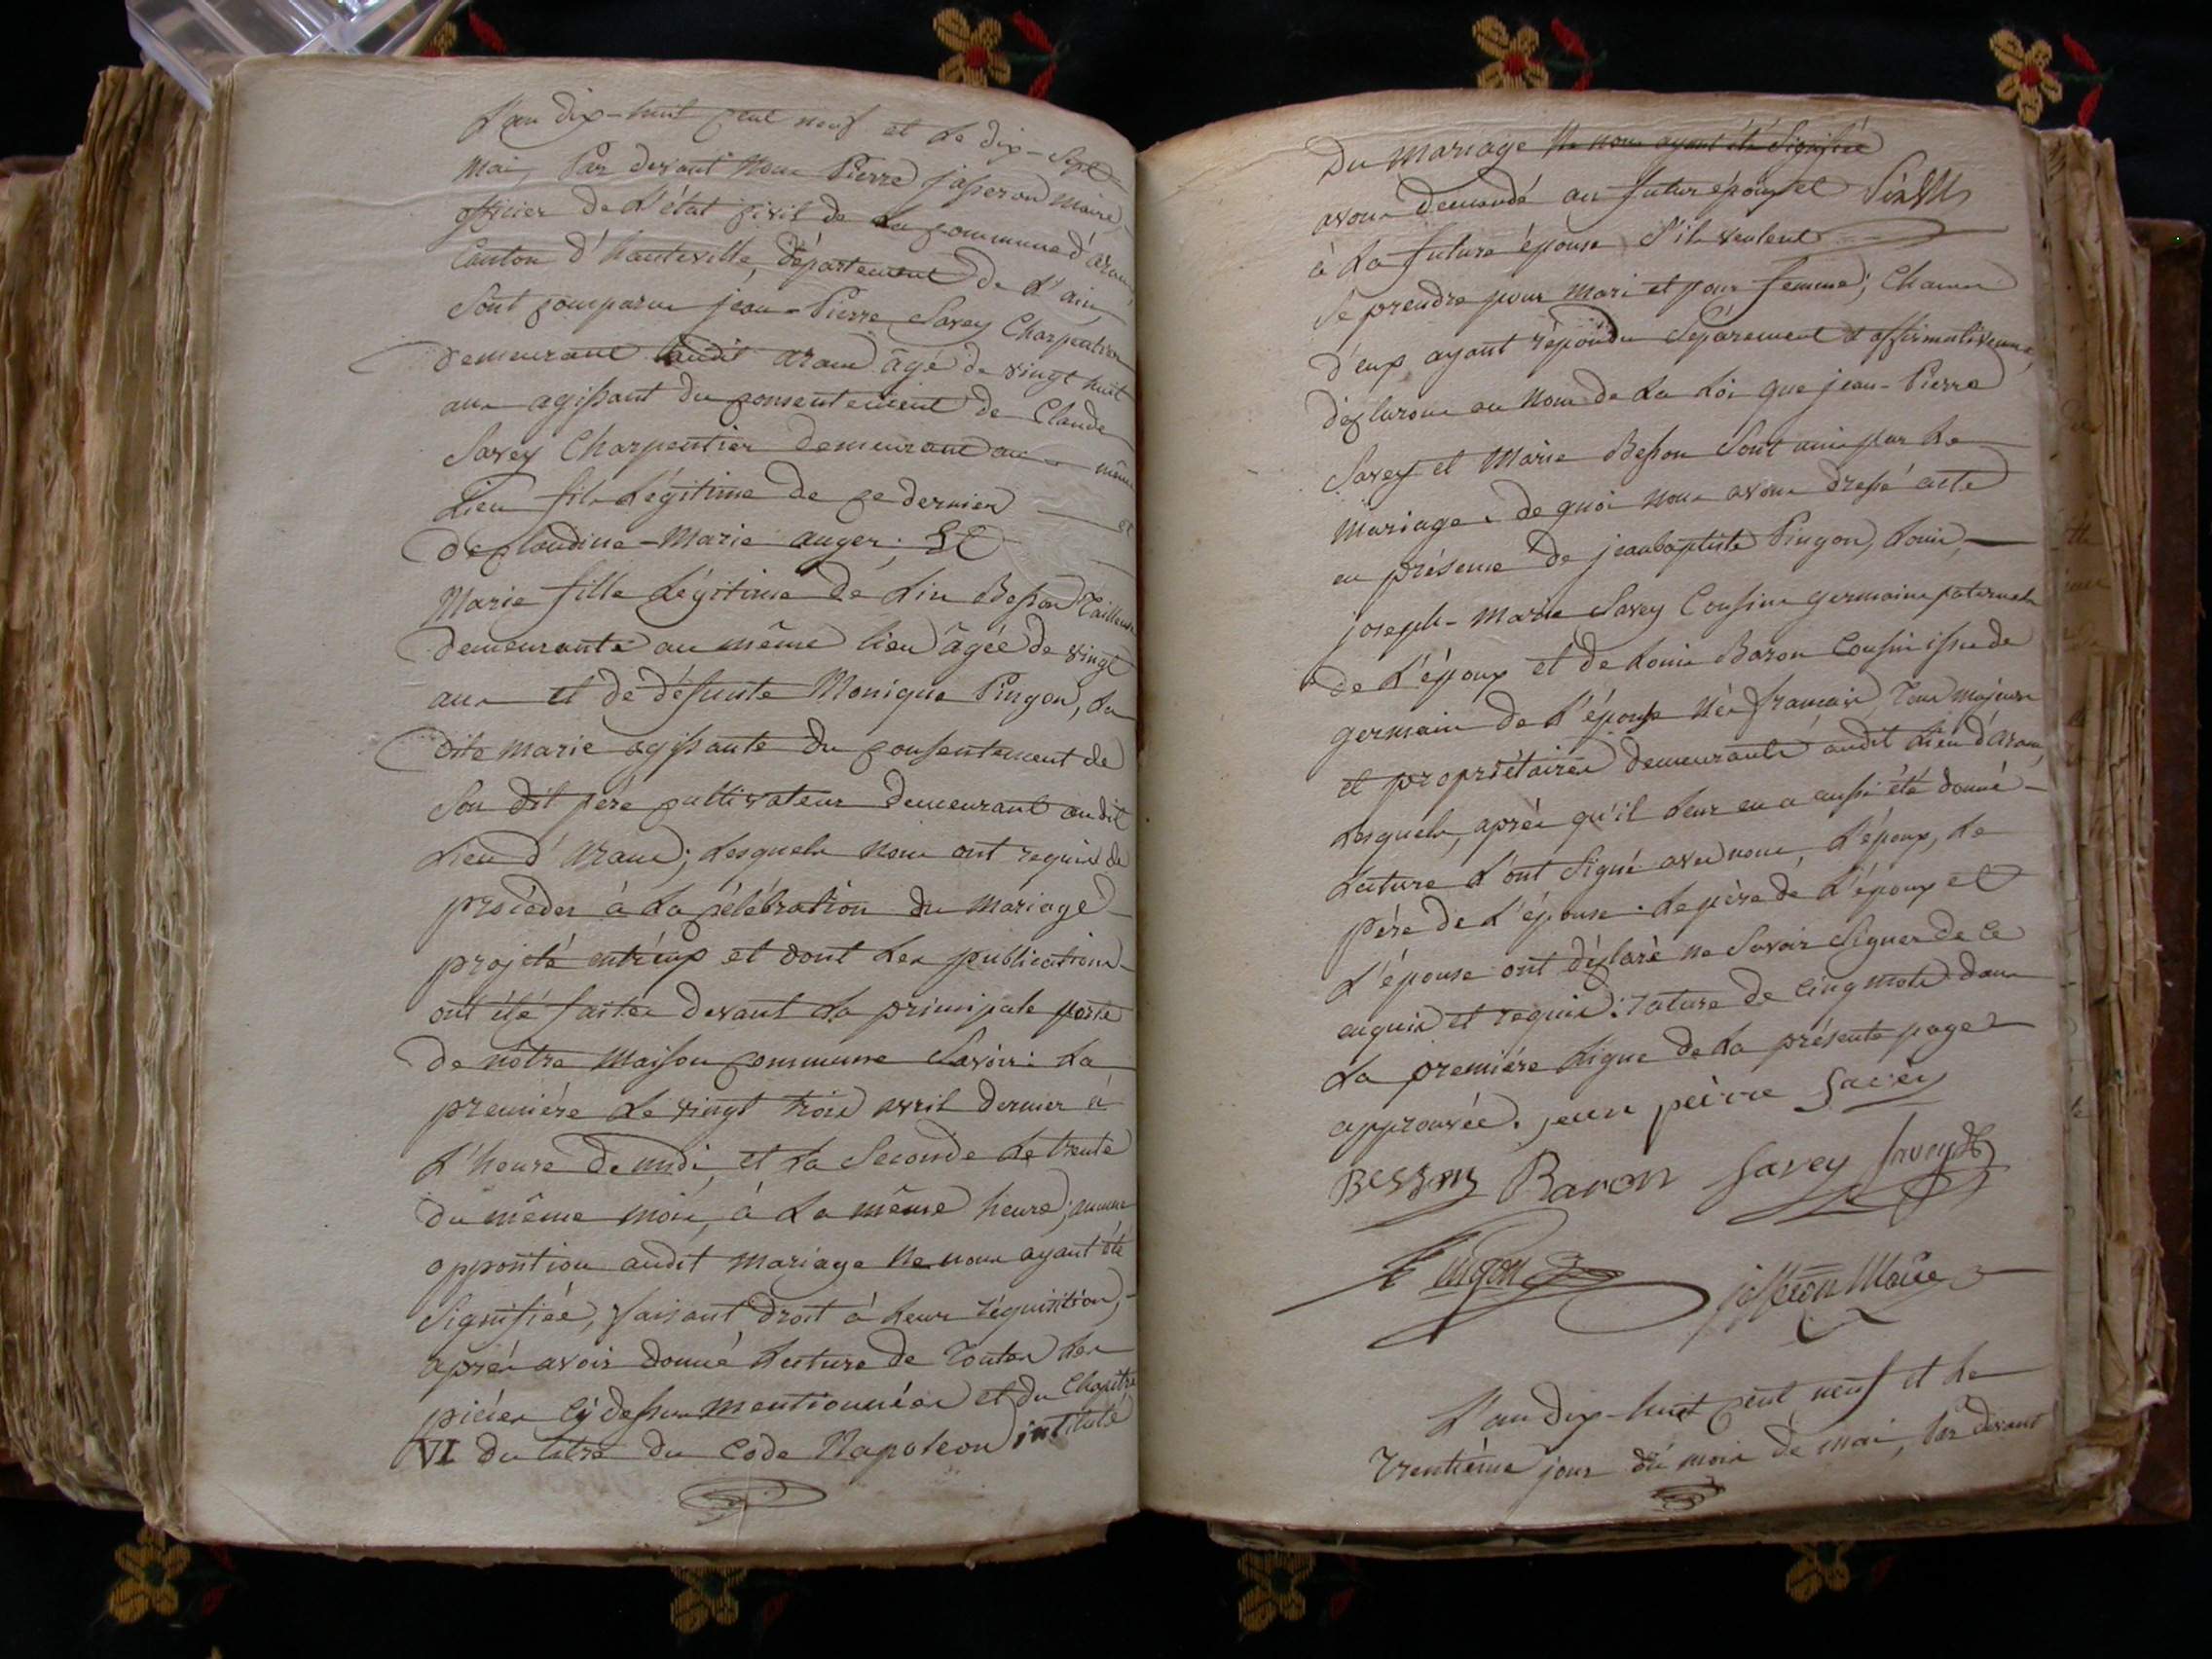 L'an dix-huit cent neuf et le dix-sept
mai, Par devant nous Pierre jasseron maire,
officier de l'état civil de la commune d'aranc,
Canton d'hauteville, département de l'ain,
Sont comparus jean-Pierre Savey Charpentier
demeurant audit aranc âgé de vingt huit
ans agissant du consentement de Claude
Savey Charpentier demeurant au même
Lieu fils légitime de ce dernier et
de claudine-Marie auger; Et
Marie fille légitime de Lin Besson Tailleur
demeurante au même lieu âgée de vingt
ans et de défunte Monique Pingon, la
dite marie agissante du consentement de
Son dit père cultivateur demeurant audit
Lieu d'Aranc; lesquels nous ont requis de
procéder à la célébration du mariage
projeté entr'eux et dont les publications
ont été faites devant la principale porte
de nôtre maison commune Savoir: La
première le vingt trois avril dernier à
L'heure de midi, et la Seconde le trente
du même mois, à la même heure; aucune
opposition audit mariage ne nous ayant été
Signifiée, faisant droit à leur réquisition,
après avoir donné lecture de toutes les
pièces ci dessus mentionnées et du Chapitre
VI du titre du Code Napoléon intitulé
Du mariage ne nous ayant été Signifiée
avons demandé au futur époux et
à la future épouse S'ils veulent
Se prendre pour mari et pour femme; Chacun
d'eux ayant répondu Séparement et affirmativement,
déclarons au nom de la Loi que jean-Pierre
Savey et Marie Besson Sont unis par le
mariage. de quoi nous avons dressé acte
en présence de jeanbaptiste Pingon, Louis,
joseph-Marie Savey Cousins germains paternels
de l'époux et de Louis Baron Cousin issu de
germain de l'épouse nés français, Tous majeurs
et propriétaires demeurants audit Lieu d'Aranc,
Lesquels, après qu'il leur en a aussi été donné
lecture l'ont Signé avec nous, l'époux, le
père de l'épouse. le père de l'époux et
l'épouse ont déclaré ne Savoir Signer de ce
enquis et requis: rature de cinq mots dans
La première Ligne de la présente page
approuvée. jean peirre Savey
Besson Baron Savey Savey
Pingon jasseron Maire
L'an dix-huit cent neuf et le
Trentième jour du mois de mai, Par devant